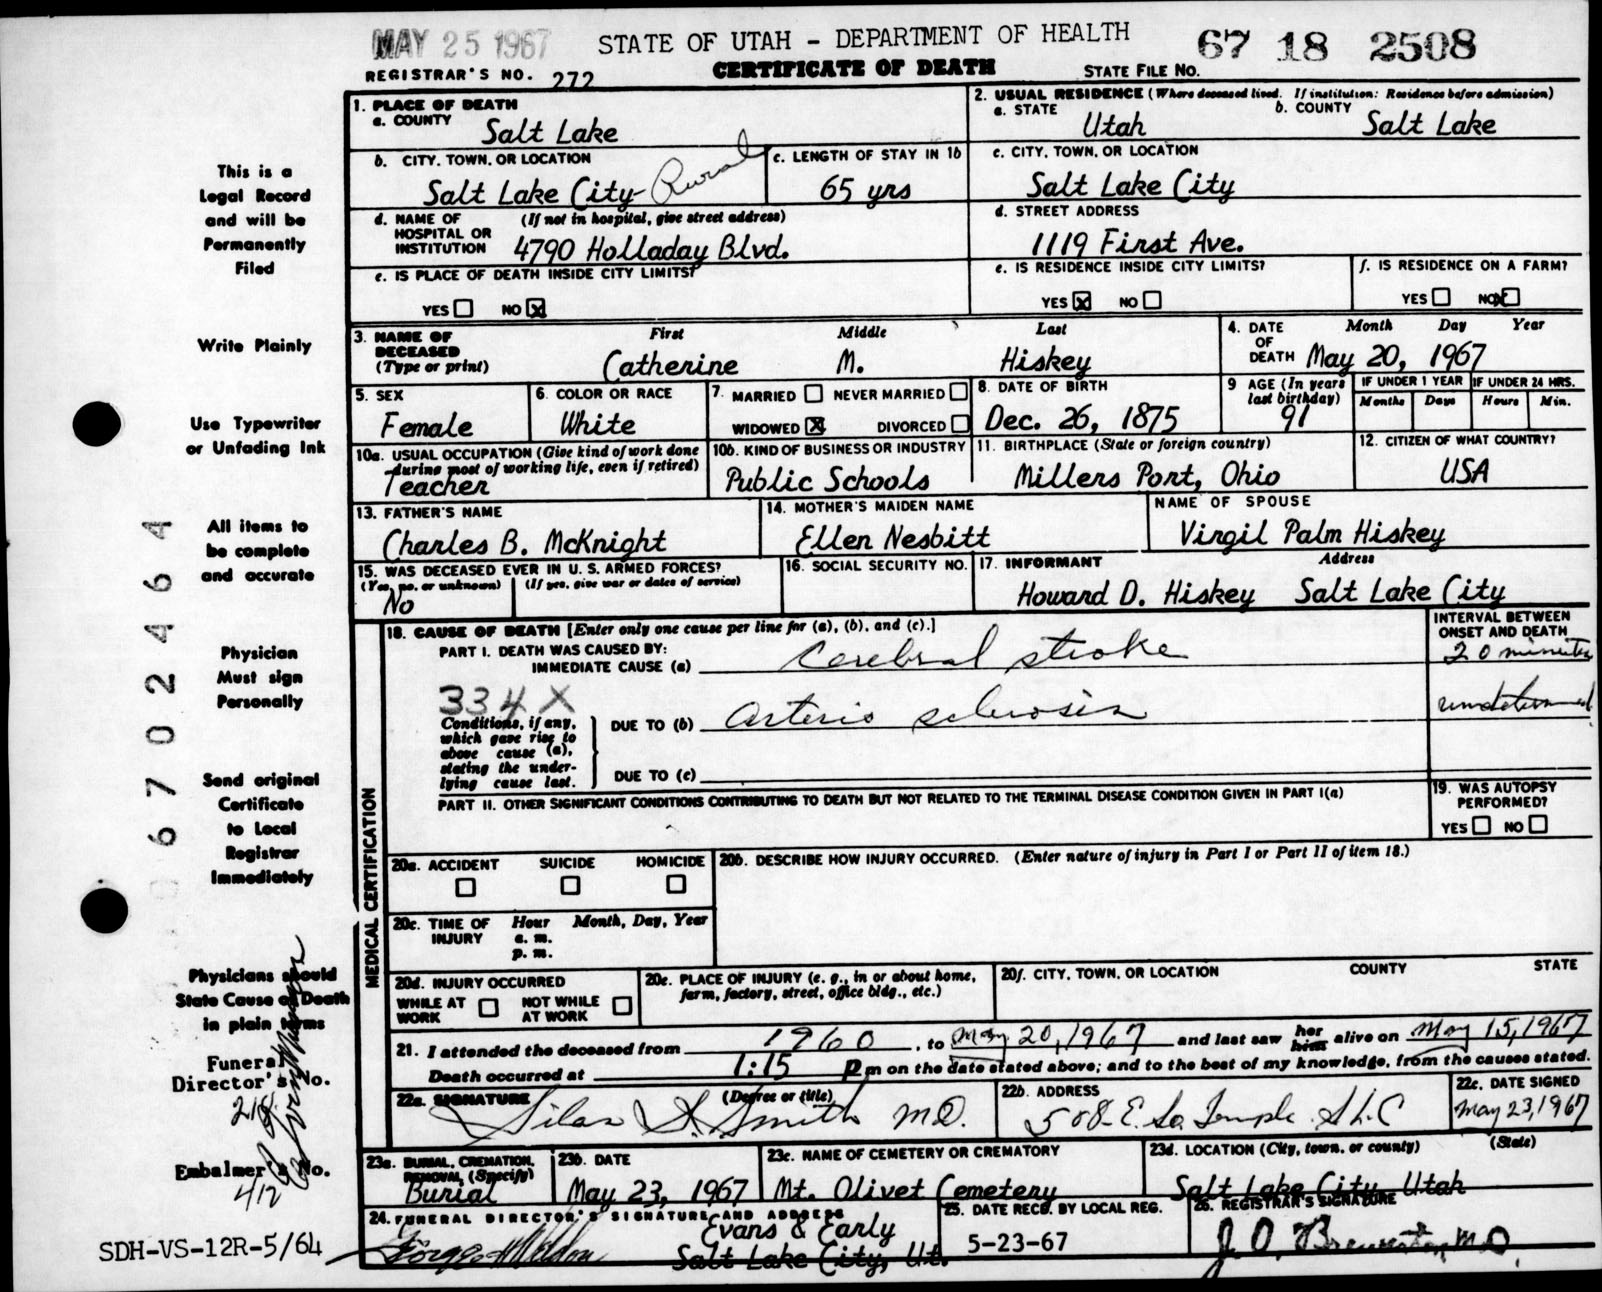 MAY 25 1967
STATE OF UTAH - DEPARTMENT OF HEALTH
67 18 2508
REGISTRAR'S NO. 272
CERTIFICATE OF DEATH
STATE FILE NO.
This is a
Legal Record
and will be
Permanently
Filed
Write Plainly
Use Typewriter
or Unfading Ink
All items to
be complete
and accurate
Physician
Must sign
Personally
Send original
Certificate
to Local
Registrar
Immediately
Physicians should
State Cause of Death
in plain terms
Funeral
Director's No.
Embalmer's No.
412
SDH-VS-12R-5/64
6702464
1. PLACE OF DEATH
a. COUNTY
Salt Lake
2. USUAL RESIDENCE (Where deceased lived. If institution: Residence before admission)
a. STATE b. COUNTY
Utah Salt Lake
b. CITY, TOWN, OR LOCATION
Salt Lake City- Rural
c. LENGTH OF STAY IN 1b
65 yrs
c. CITY, TOWN, OR LOCATION
Salt Lake City
d. NAME OF (If not in hospital, give street address)
HOSPITAL OR
INSTITUTION 4790 Holladay Blvd.
d. STREET ADDRESS
1119 First Ave.
e. IS PLACE OF DEATH INSIDE CITY LIMITS?
YES NO X
e. IS RESIDENCE INSIDE CITY LIMITS?
YES X NO
f. IS RESIDENCE ON A FARM?
YES NO X
3. NAME OF First Middle Last
DECEASED
(Type or print) Catherine M. Hiskey
4. DATE Month Day Year
OF
DEATH May 20, 1967
5. SEX
Female
6. COLOR OR RACE
White
7. MARRIED NEVER MARRIED
WIDOWED X DIVORCED
8. DATE OF BIRTH
Dec. 26, 1875
9 AGE (In years
last birthday)
91
IF UNDER 1 YEAR IF UNDER 24 HRS.
Months Days Hours Min.
10a. USUAL OCCUPATION (Give kind of work done
during most of working life, even if retired)
Teacher
10b. KIND OF BUSINESS OR INDUSTRY
Public Schools
11. BIRTHPLACE (State or foreign country)
Millers Port, Ohio
12. CITIZEN OF WHAT COUNTRY?
USA
13. FATHER'S NAME
Charles B. McKnight
14. MOTHER'S MAIDEN NAME
Ellen Nesbitt
NAME OF SPOUSE
Virgil Palm Hiskey
15. WAS DECEASED EVER IN U. S. ARMED FORCES?
(Yes, no, or unknown) (If yes, give war or dates of service)
No
16. SOCIAL SECURITY NO.
17. INFORMANT Address
Howard D. Hiskey Salt Lake City
MEDICAL CERTIFICATION
18. CAUSE OF DEATH [Enter only one cause per line for (a), (b), and (c).]
INTERVAL BETWEEN
ONSET AND DEATH
PART I. DEATH WAS CAUSED BY:
IMMEDIATE CAUSE (a) Cerebral stroke 20 minutes
334X
Conditions, if any,
which gave rise to
above cause (a),
stating the under-
lying cause last.
DUE TO (b) Arterio sclerosis undetermined
DUE TO (c)
PART II. OTHER SIGNIFICANT CONDITIONS CONTRIBUTING TO DEATH BUT NOT RELATED TO THE TERMINAL DISEASE CONDITION GIVEN IN PART I(a)
19. WAS AUTOPSY
PERFORMED?
YES NO
20a. ACCIDENT SUICIDE HOMICIDE
20b. DESCRIBE HOW INJURY OCCURRED. (Enter nature of injury in Part I or Part II of item 18.)
20c. TIME OF Hour Month, Day, Year
INJURY a. m.
p. m.
20d. INJURY OCCURRED
WHILE AT WORK NOT WHILE AT WORK
20e. PLACE OF INJURY (e. g., in or about home,
farm, factory, street, office bldg., etc.)
20f. CITY, TOWN, OR LOCATION COUNTY STATE
21. I attended the deceased from 1960, to May 20, 1967 and last saw her him alive on May 15, 1967
Death occurred at 1:15 P m on the date stated above; and to the best of my knowledge, from the causes stated.
22a. SIGNATURE (Degree or title)
Silas S. Smith M.D.
22b. ADDRESS
508 E. So. Temple S.L.C
22c. DATE SIGNED
May 23, 1967
23a. BURIAL, CREMATION,
REMOVAL, (Specify)
Burial
23b. DATE
May 23, 1967
23c. NAME OF CEMETERY OR CREMATORY
Mt. Olivet Cemetery
23d. LOCATION (City, town, or county) (State)
Salt Lake City Utah
24. FUNERAL DIRECTOR'S SIGNATURE AND ADDRESS
Evans & Early
Salt Lake City, Ut.
25. DATE RECD. BY LOCAL REG.
5-23-67
26. REGISTRAR'S SIGNATURE
J. O. Brewerton, M.D.